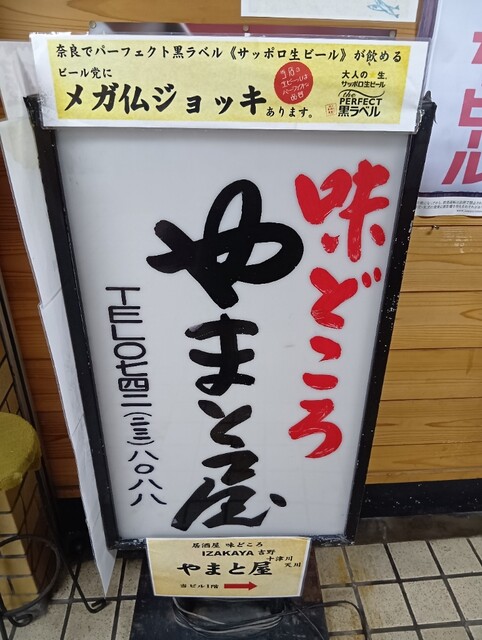 奈良でパーフェクト黒ラベル《サッポロ生ビール》が飲める
ビール党に
メガ仏ジョッキ
あります。
当店の
生ビールは
パーフェクト
大人の★生
サッポロ生ビール
the
PERFECT
黒ラベル
味どころ
やまと屋
TEL〇七四二(二三)八〇八八
居酒屋 味どころ
IZAKAYA 吉野
十津川
天川
やまと屋
当ビル1階